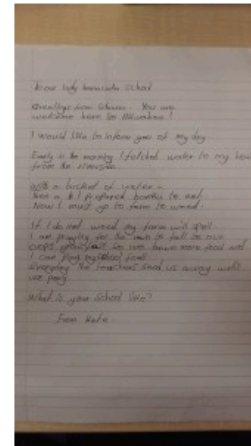 To our lady immaculate School
Greetings from Ghana. You are
welcome here to
I would like to inform you of my day
Early in the morning I fetched water to my house
from the
with a bucket of water
then a & I prepared to eat
Now I must go to farm to weed.
If I do not weed my farm will spoil
I am praying for the rain to fall so our
crops so we have more food and
I can pay my school fees
Everyday the teachers send us away until
we pay
What is your School like?
From